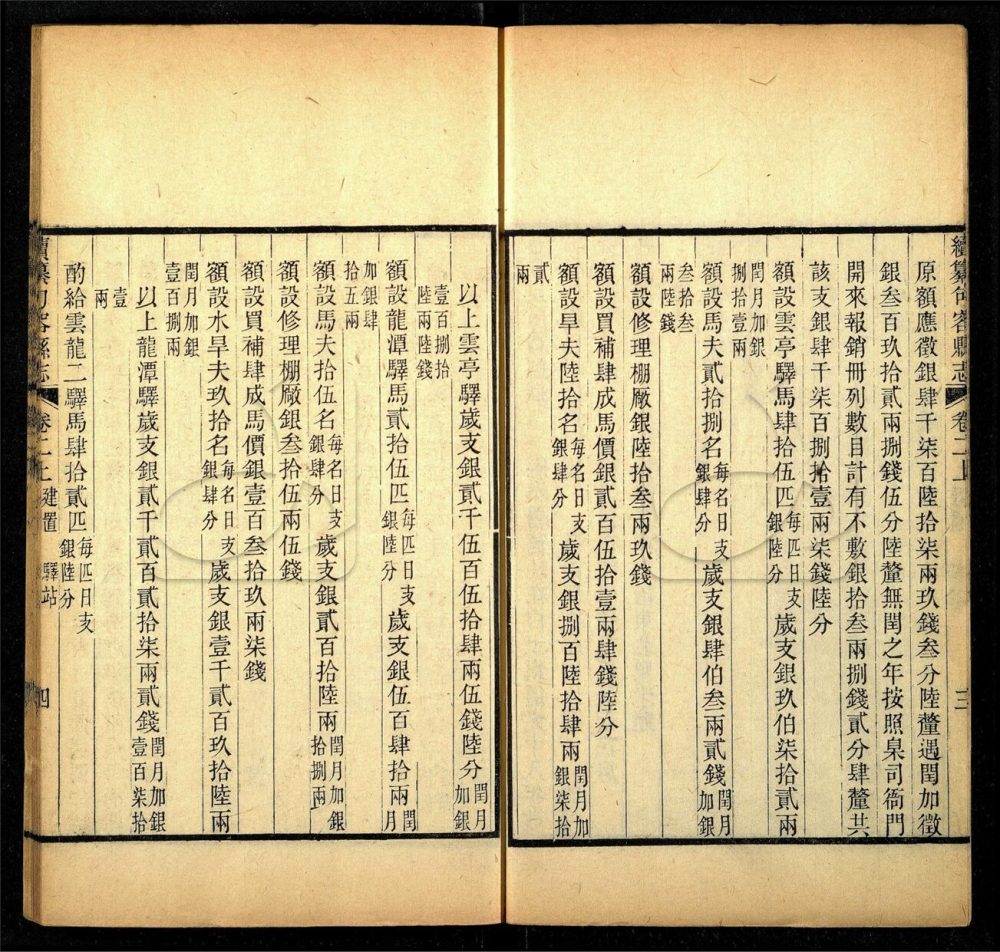 續纂句容縣志 卷二上 三
原額應徵銀肆千柒百陸拾柒兩玖錢叁分陸釐遇閏加徵
銀叁百玖拾貳兩捌錢伍分陸釐無閏之年按照臬司衙門
開來報銷冊列數目計有不敷銀拾叁兩捌錢貳分肆釐共
該支銀肆千柒百捌拾壹兩柒錢陸分
額設雲亭驛馬肆拾伍匹每匹日支銀陸分歲支銀玖伯柒拾貳兩
閏月加銀捌拾壹兩
額設馬夫貳拾捌名每名日支銀肆分歲支銀肆伯叁兩貳錢閏月加銀
叁拾叁兩陸錢
額設修理棚廠銀陸拾叁兩玖錢
額設買補肆成馬價銀貳百伍拾壹兩肆錢陸分
額設旱夫陸拾名每名日支銀肆分歲支銀捌百陸拾肆兩閏月加銀柒拾
貳兩
以上雲亭驛歲支銀貳千伍百伍拾肆兩伍錢陸分閏月加銀
壹百捌拾陸兩陸錢
額設龍潭驛馬貳拾伍匹每匹日支銀陸分歲支銀伍百肆拾兩閏月
加銀肆拾五兩
額設馬夫拾伍名每名日支銀肆分歲支銀貳百拾陸兩閏月加銀拾捌兩
額設修理棚廠銀叁拾伍兩伍錢
額設買補肆成馬價銀壹百叁拾玖兩柒錢
額設水旱夫玖拾名每名日支銀肆分歲支銀壹千貳百玖拾陸兩
閏月加銀壹百捌兩
以上龍潭驛歲支銀貳千貳百貳拾柒兩貳錢閏月加銀壹百柒拾
壹兩
酌給雲龍二驛馬肆拾貳匹每匹日支銀陸分
續纂句容縣志 卷二上 建置 驛站 四